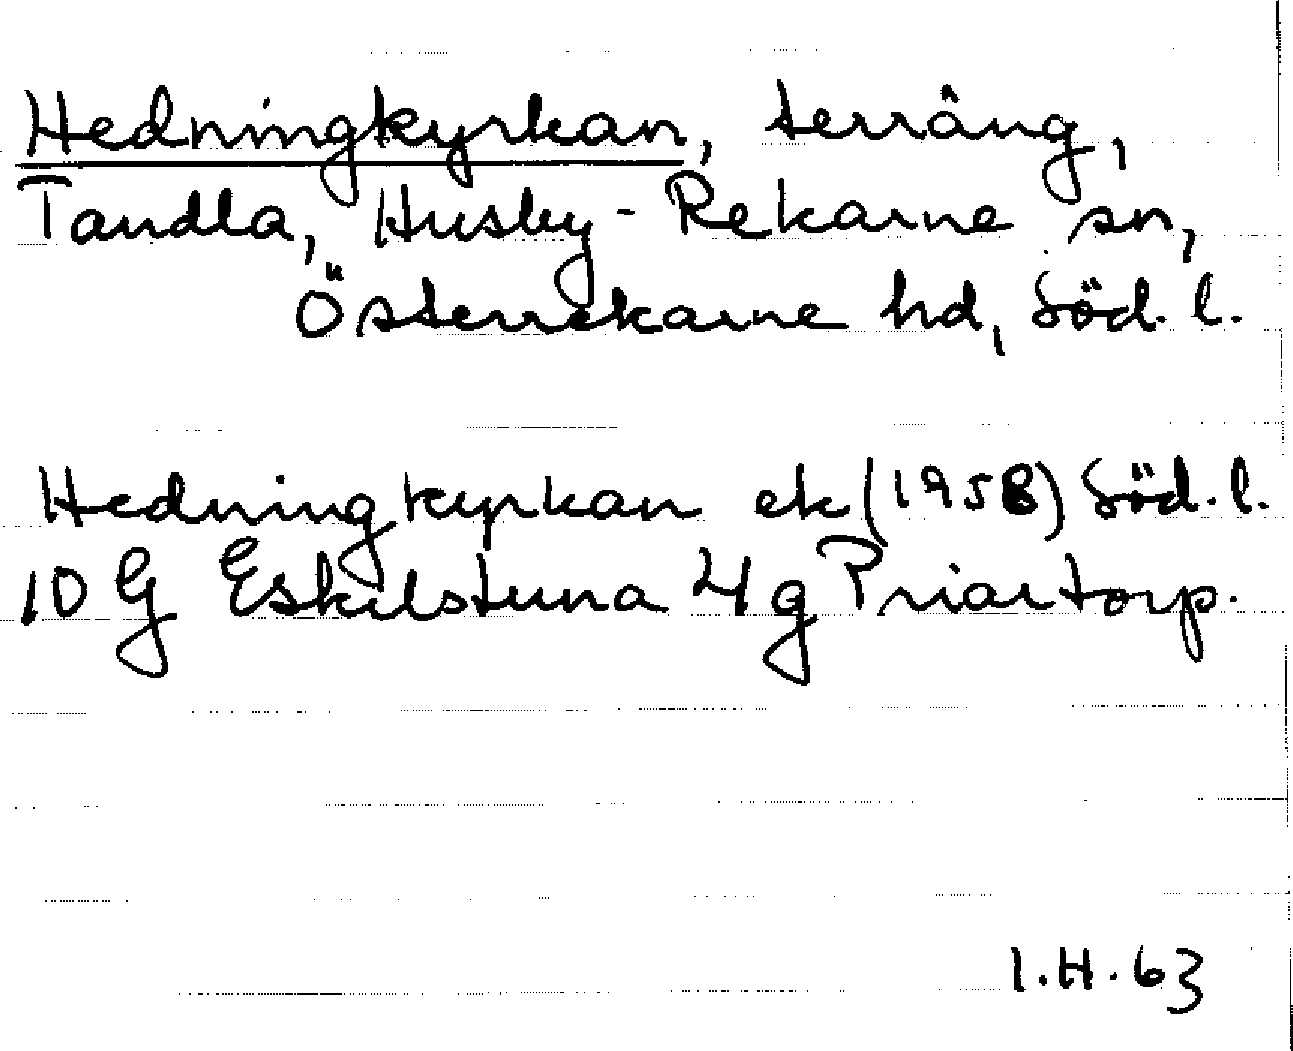 Hedningkyrkan, terräng,
Tandla, Husby-Rekarne sn,
Österrekarne hd, Söd. l.
Hedningkyrkan ek (1958) Söd. l.
10 G Eskilstuna 4 g Priartorp.
I.H. 63